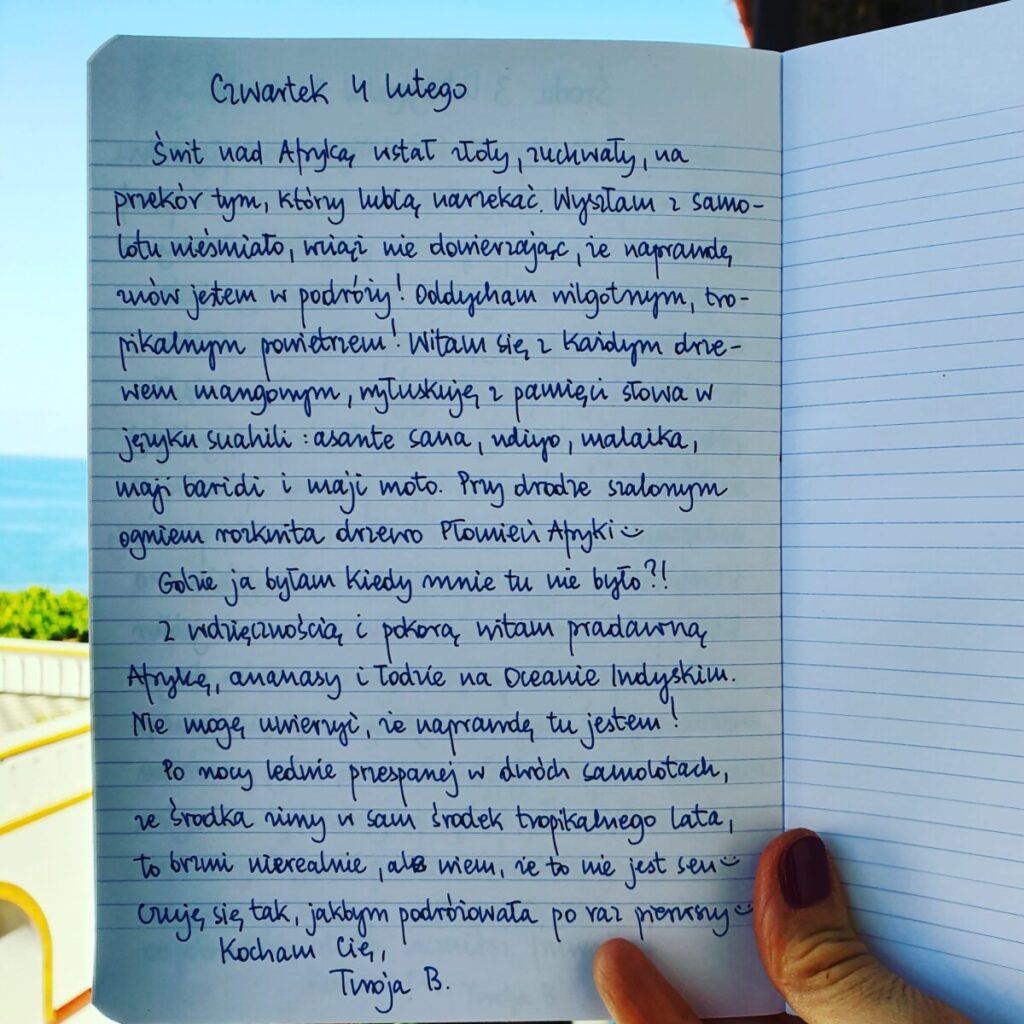 Czwartek 4 lutego
Świt nad Afryką wstał złoty, zuchwały, na
przekór tym, którzy lubią narzekać. Wyszłam z samo-
lotu nieśmiało, wciąż nie dowierzając, że naprawdę
znów jestem w podróży! Oddycham wilgotnym, tro-
pikalnym powietrzem! Witam się z każdym drze-
wem mangowym, wyłuskuję z pamięci słowa w
języku suahili: asante sana, ndiyo, malaika,
maji baridi i maji moto. Przy drodze szalonym
ogniem rozkwita drzewo Płomień Afryki
Gdzie ja byłam kiedy mnie tu nie było?!
Z wdzięcznością i pokorą witam pradawną
Afrykę, ananasy i łodzie na Oceanie Indyskim.
Nie mogę uwierzyć, że naprawdę tu jestem!
Po nocy ledwie przespanej w dwóch samolotach,
ze środka zimy w sam środek tropikalnego lata,
to brzmi nierealnie, ale wiem, że to nie jest sen
Czuję się tak, jakbym podróżowała po raz pierwszy
Kocham Cię,
Twoja B.